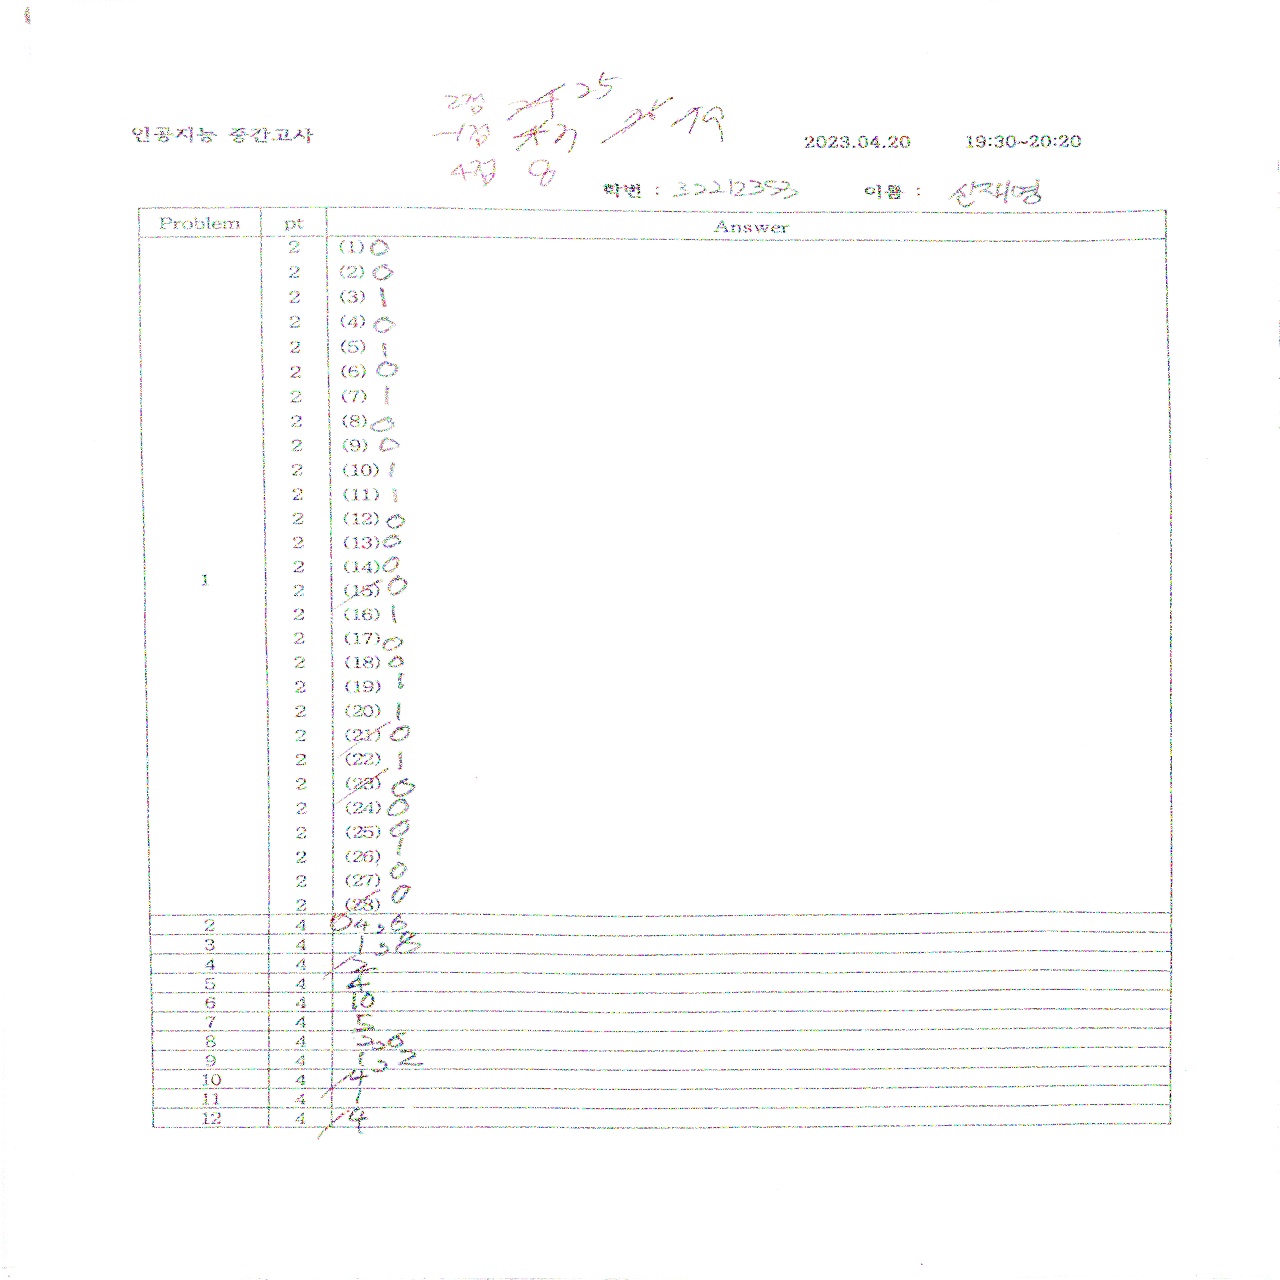 2점 25
인공지능 중간고사 -1점 19 2023.04.20 19:30~20:20
4점 8
학번 : 32212353 이름 : 신재명
Problem pt Answer
1
2 (1) 0
2 (2) 0
2 (3) 1
2 (4) 0
2 (5) 1
2 (6) 0
2 (7) 1
2 (8) 0
2 (9) 0
2 (10) 1
2 (11) 1
2 (12) 0
2 (13) 0
2 (14) 0
2 (15) 0
2 (16) 1
2 (17) 0
2 (18) 0
2 (19) 1
2 (20) 1
2 (21) 0
2 (22) 1
2 (23) 0
2 (24) 0
2 (25) 0
2 (26) 1
2 (27) 0
2 (28) 0
2 4 4, 6
3 4 1, 3
4 4
5 4 4
6 4 10
7 4 5
8 4 3,6
9 4 1, 2
10 4 4
11 4 1
12 4 4